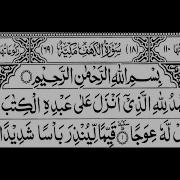 ١١٠ (١٨) سُوْرَةُ الْكَهْفِ مَكِّيَّةٌ (٦٩)
بِسْمِ اللّٰهِ الرَّحْمٰنِ الرَّحِيْمِ
مْدُ لِلّٰهِ الَّذِيْۤ اَنْزَلَ عَلٰى عَبْدِهِ الْكِتٰبَ
لْ لَّهٗ عِوَجًا ۜ ١ قَيِّمًا لِّيُنْذِرَ بَاْسًا شَدِيْدًا